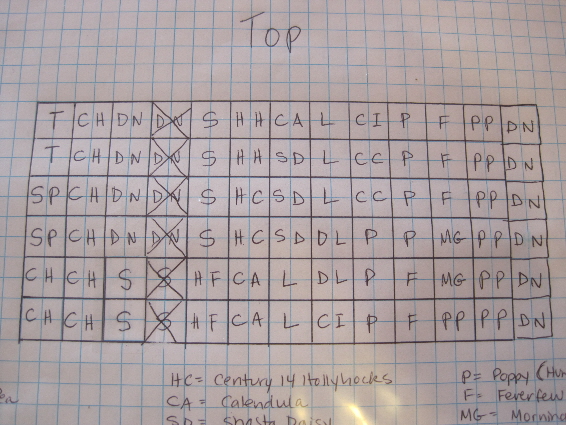 TOP
T CH DN DN S HH CA L CI P F PP DN
T CH DN DN S HH SD L CC P F PP DN
SP CH DN DN S HC SD L CC P F PP DN
SP CH DN DN S HC SD DL P P MG PP DN
CH CH S S HF CA L DL P F MG PP DN
CH CH S S HF CA L CI P F PP PP DN
HC= Century 14 Hollyhocks P= Poppy (Hun
CA = Calendula F= Feverfew
SD = Shasta Daisy MG= Mornin